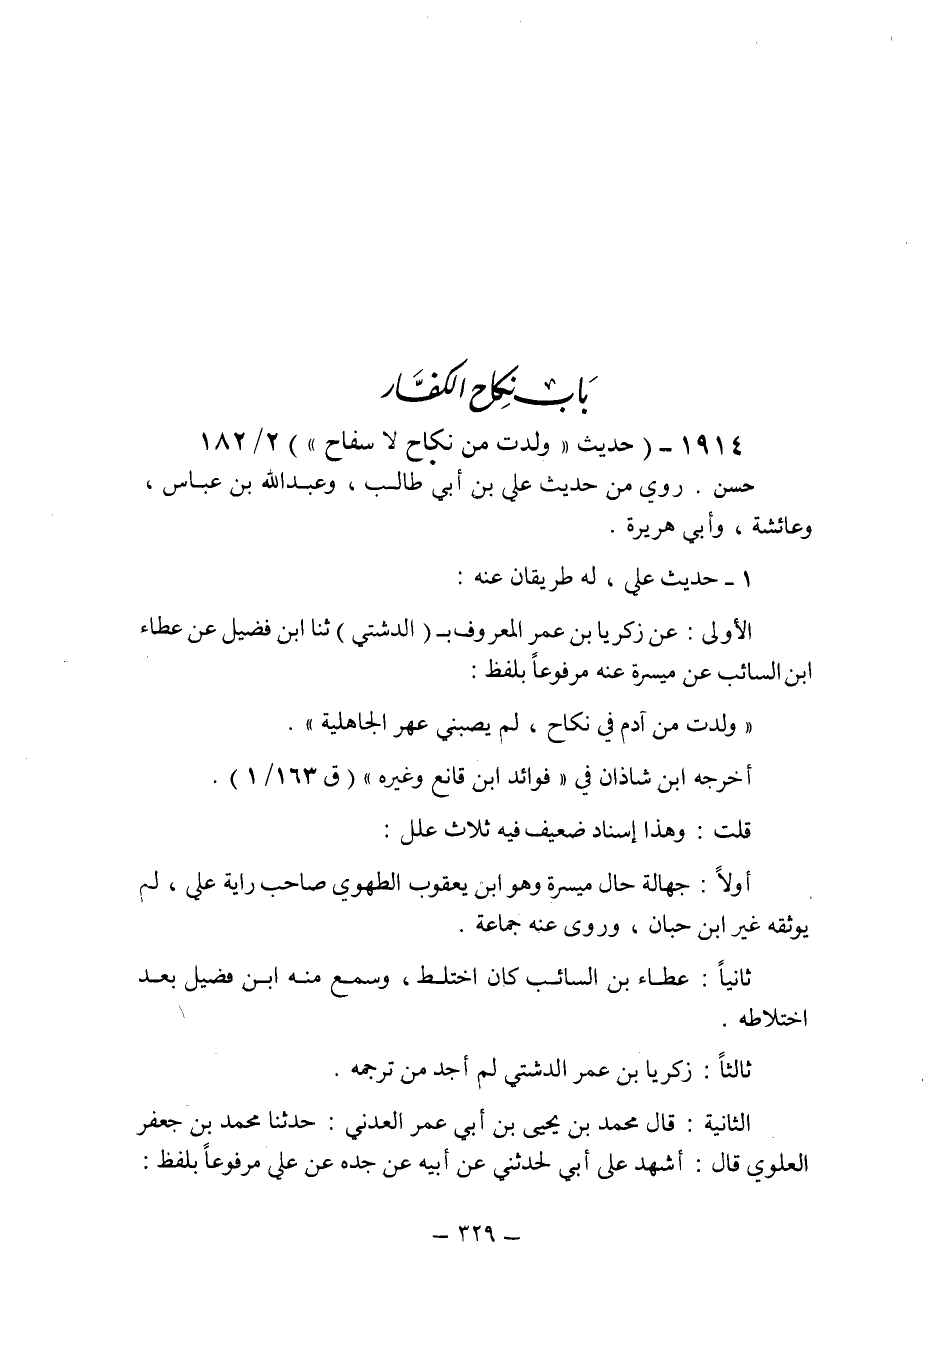 بَاب نِكاح الكفَّار
١٩١٤ - ( حديث « ولدت من نكاح لا سفاح » ) ٢/ ١٨٢
حسن . روي من حديث علي بن أبي طالب ، وعبدالله بن عباس ،
وعائشة ، وأبي هريرة .
١ - حديث علي ، له طريقان عنه :
الأولى : عن زكريا بن عمر المعروف بـ ( الدشتي ) ثنا ابن فضيل عن عطاء
ابن السائب عن ميسرة عنه مرفوعاً بلفظ :
« ولدت من آدم في نكاح ، لم يصبني عهر الجاهلية » .
أخرجه ابن شاذان في « فوائد ابن قانع وغيره » ( ق ١٦٣/ ١ ) .
قلت : وهذا إسناد ضعيف فيه ثلاث علل :
أولاً : جهالة حال ميسرة وهو ابن يعقوب الطهوي صاحب راية علي ، لم
يوثقه غير ابن حبان ، وروى عنه جماعة .
ثانياً : عطاء بن السائب كان اختلط ، وسمع منه ابن فضيل بعد
اختلاطه .
ثالثاً : زكريا بن عمر الدشتي لم أجد من ترجمه .
الثانية : قال محمد بن يحيى بن أبي عمر العدني : حدثنا محمد بن جعفر
العلوي قال : أشهد على أبي لحدثني عن أبيه عن جده عن علي مرفوعاً بلفظ :
- ٣٢٩ -